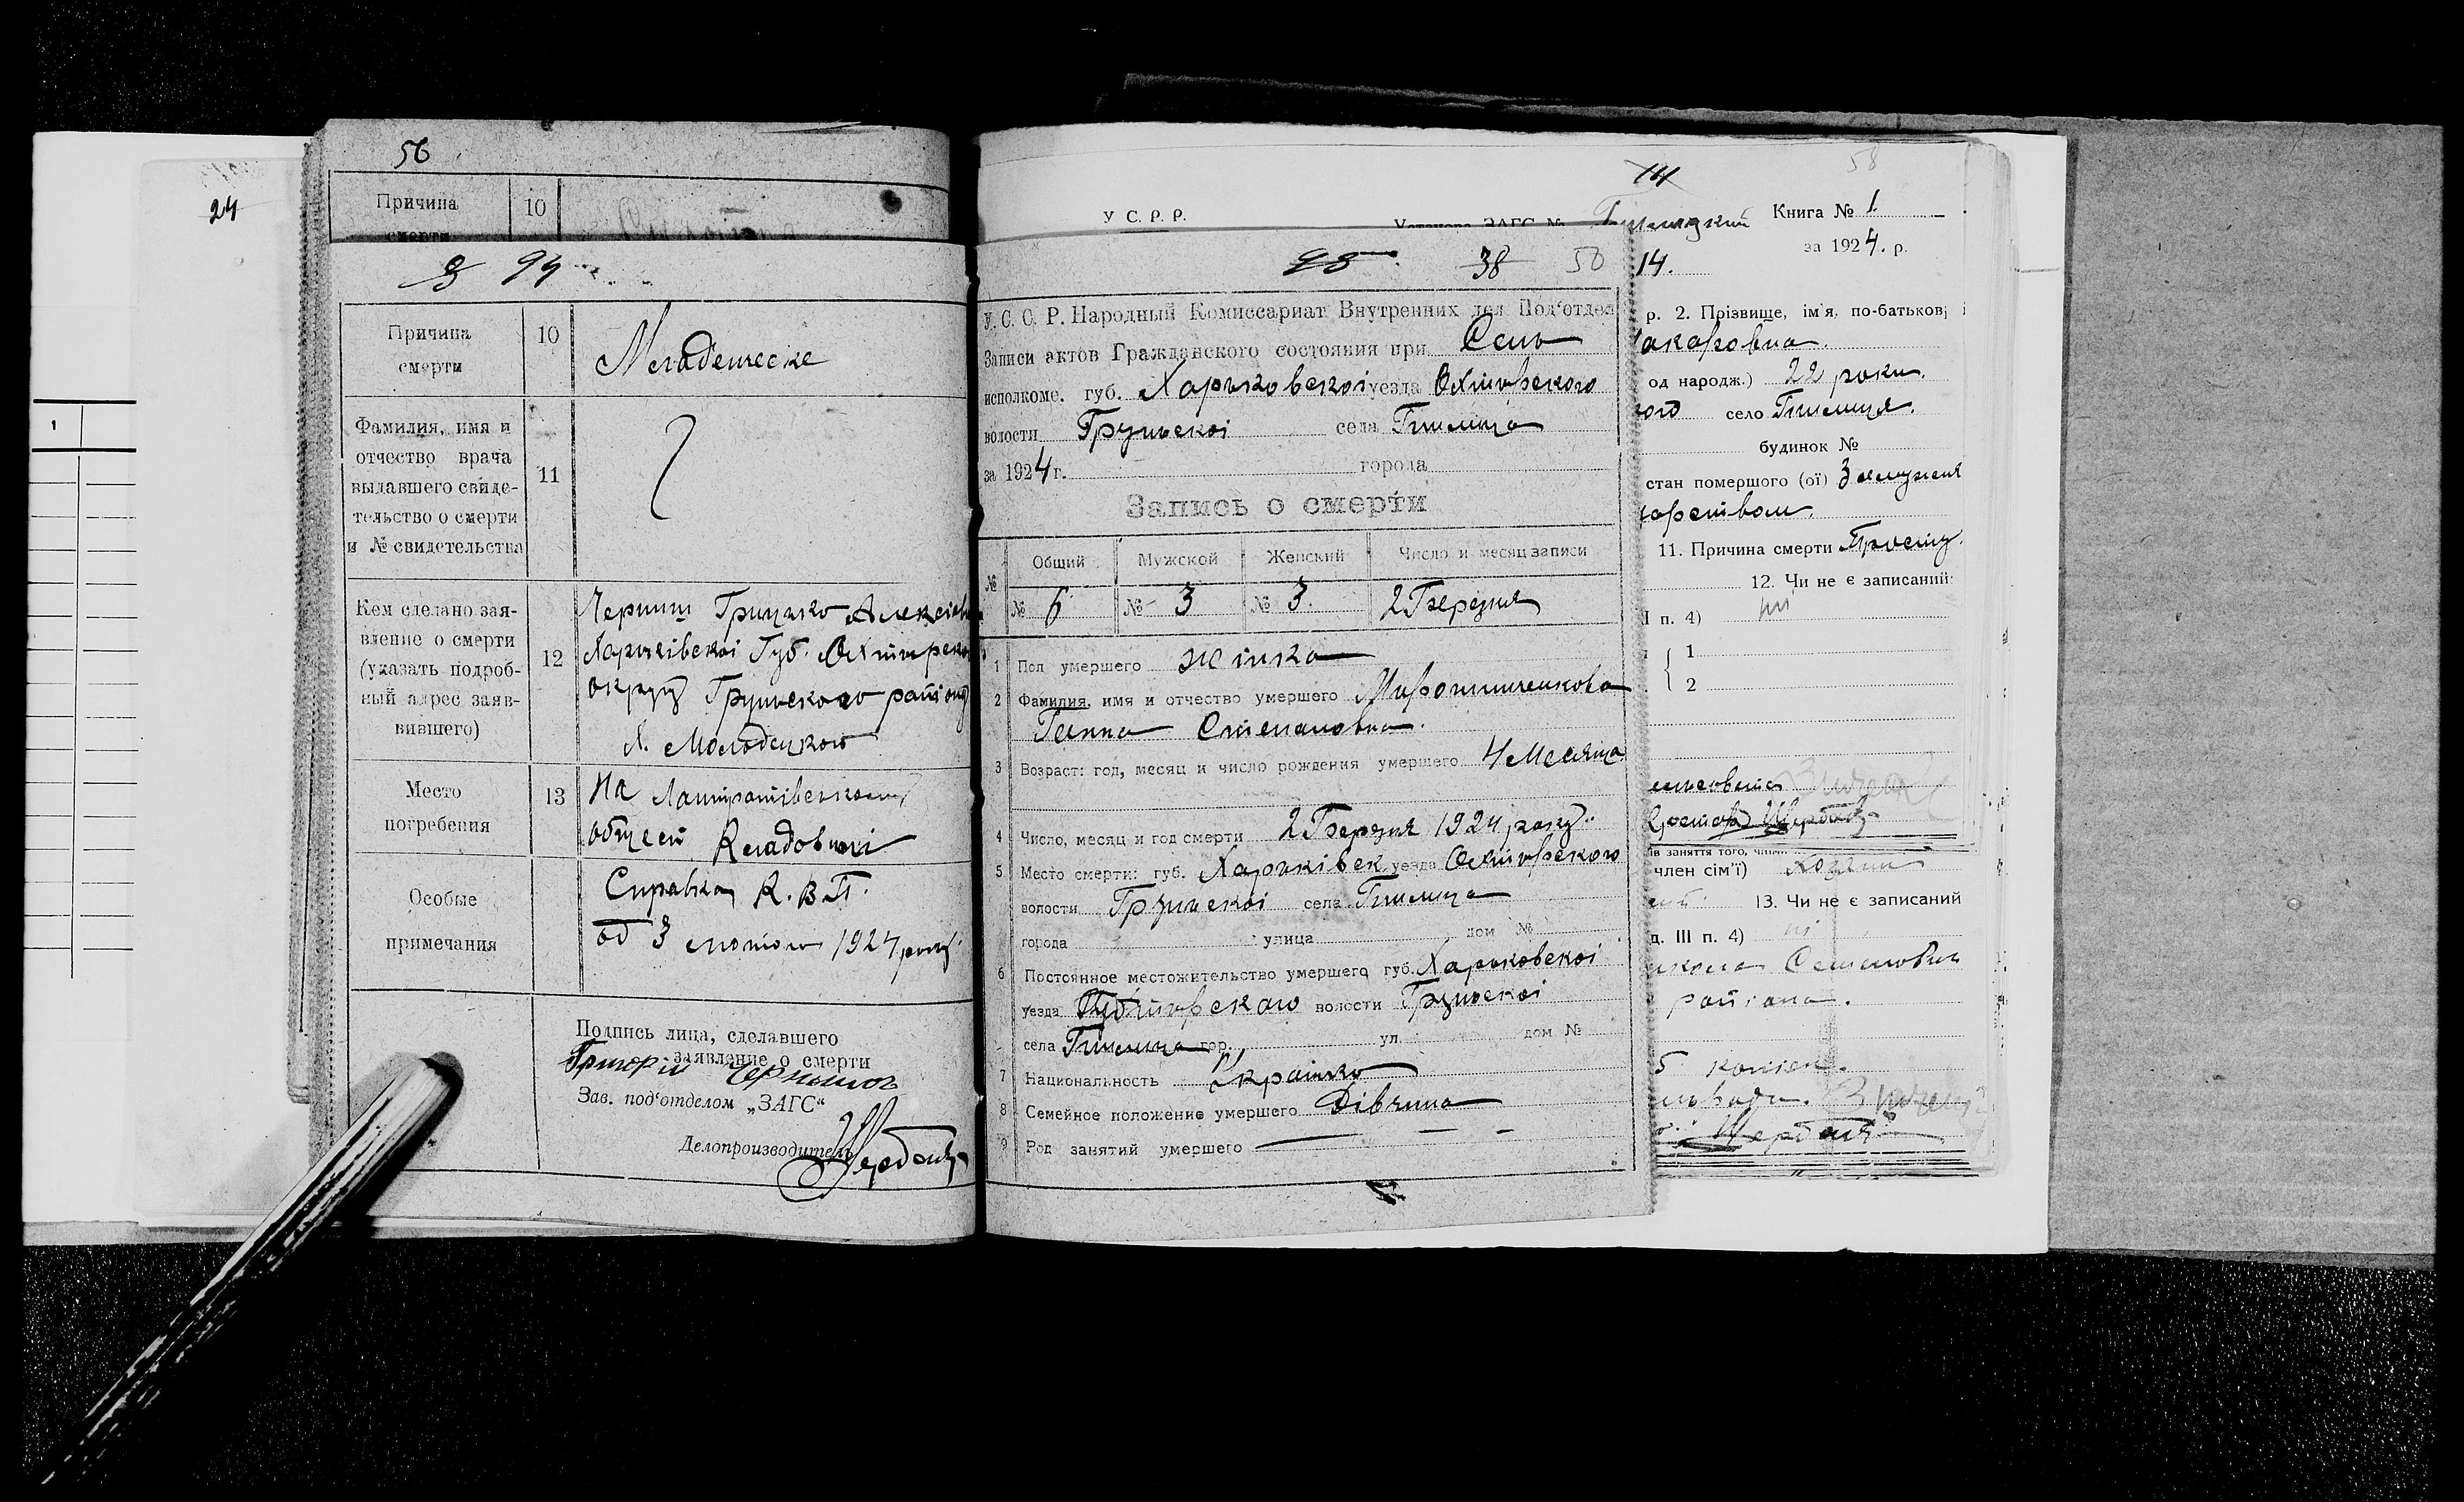 24
1
56
Причина 10
смерти
94
Причина
смерти
10
Младенческе
Фамилия, имя и
отчество врача
выдавшего свиде-
тельство о смерти
и № свидетельства
11
Кем сделано зая-
вление о смерти
(указать подроб-
ный адрес заяв-
вившего)
12
Черниш Грицько Алексієв
Харьківскоі Губ. Охтирско
округу Груньского району
х. Молодецкого
Место
погребения
13
На
общест Кладовищі
Особые
примечания
Справка К. В. П.
од 3 лютого 1924 року
Подпись лица, сделавшего
заявление о смерти
Григорій Чернышов
Зав. под‘отделом „ЗАГС“
Делопроизводитель
38 50
У. С. С. Р. Народный Комиссариат Внутренних дел Под‘отдел
Записи актов Гражданского состояния при Сель
исполкоме. губ. Харьковскоі уезда Охтирского
волости Груньскоі села
за 1924 г. города
Запись о смерти
№ Общий Мужской Женский Число и месяц записи
№ 6 № 3 № 3. 2 Березня
1 Пол умершего жінка
2 Фамилия, имя и отчество умершего Мирошниченкова
Ганна Степановна.
3 Возраст: год, месяц и число рождения умершего 4 Месяца
4 Число, месяц и год смерти 2 Березня 1924 року
5 Место смерти: губ. Харьківск уезда Охтирского
волости Груньскоі села
города улица дом №
6 Постоянное местожительство умершего губ. Харьковскоі
уезда волости Груньскоі
села гор. ул. дом №
7 Национальность Украінка
8 Семейное положение умершего Дівчина
9 Род занятий умершего
14 58
У С. Р. Р. Установа ЗАГС № Книга № 1
за 1924. р.
14.
р. 2. Прізвище, ім'я, по-батькові
акаровна.
од народж.) 22 роки.
ого село
будинок №
стан померщого (ої) Замужня
11. Причина смерти
12. Чи не є записаний
І п. 4) ні
1
2
ів заняття того, чиїм
член сім'ї)
13. Чи не є записаний
д. III п. 4) ні
района.
5 копіек.